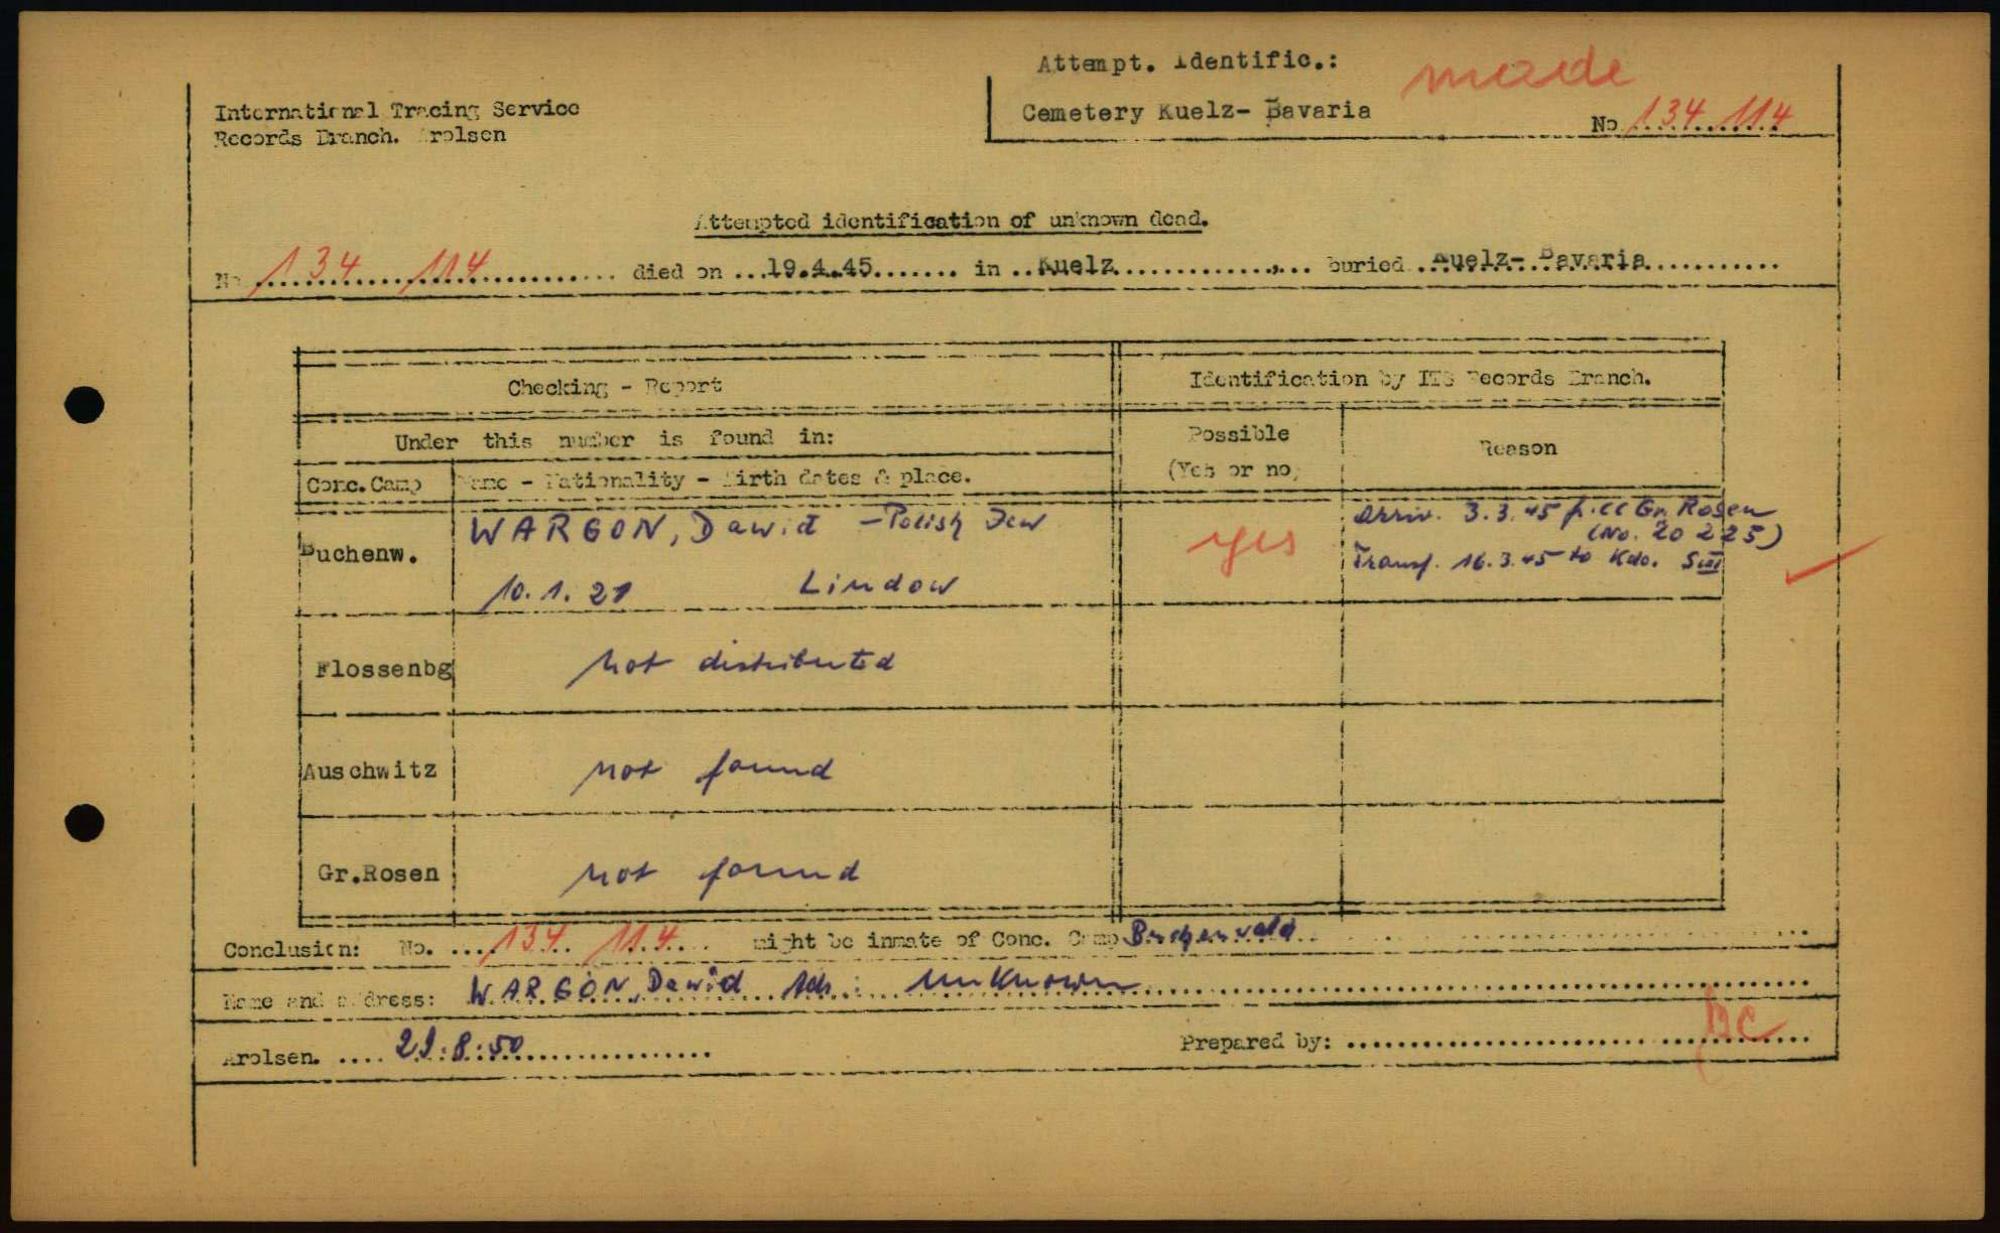 Attempt. Identific.: made
International Tracing Service
Cemetery Kuelz- Bavaria
Records Branch. Arolsen
No 134 114
Attempted identification of unknown dead.
No 134 114 died on ...19.4.45....... in ..Kuelz..............,... buried ..Kuelz- Bavaria...........
Checking - Report
Identification by ITS Records Branch.
Under this number is found in:
Possible
(Yes or no)
Reason
Conc.Camp
Name - Nationality - Birth dates & place.
Buchenw.
WARGON, Dawid - Polish Jew
10.1.21 Lindow
yes
Arriv. 3.3.45 f. CC Gr. Rosen
(No. 20 225)
Transf. 16.3.45 to Kdo. SIII
Flossenbg
not distributed
Auschwitz
not found
Gr.Rosen
not found
Conclusion: No. ....134 114.... might be inmate of Conc. Camp Buchenwald
Name and address: WARGON, Dawid Adr.: unknown
Arolsen. .... 29.8.50
Prepared by: